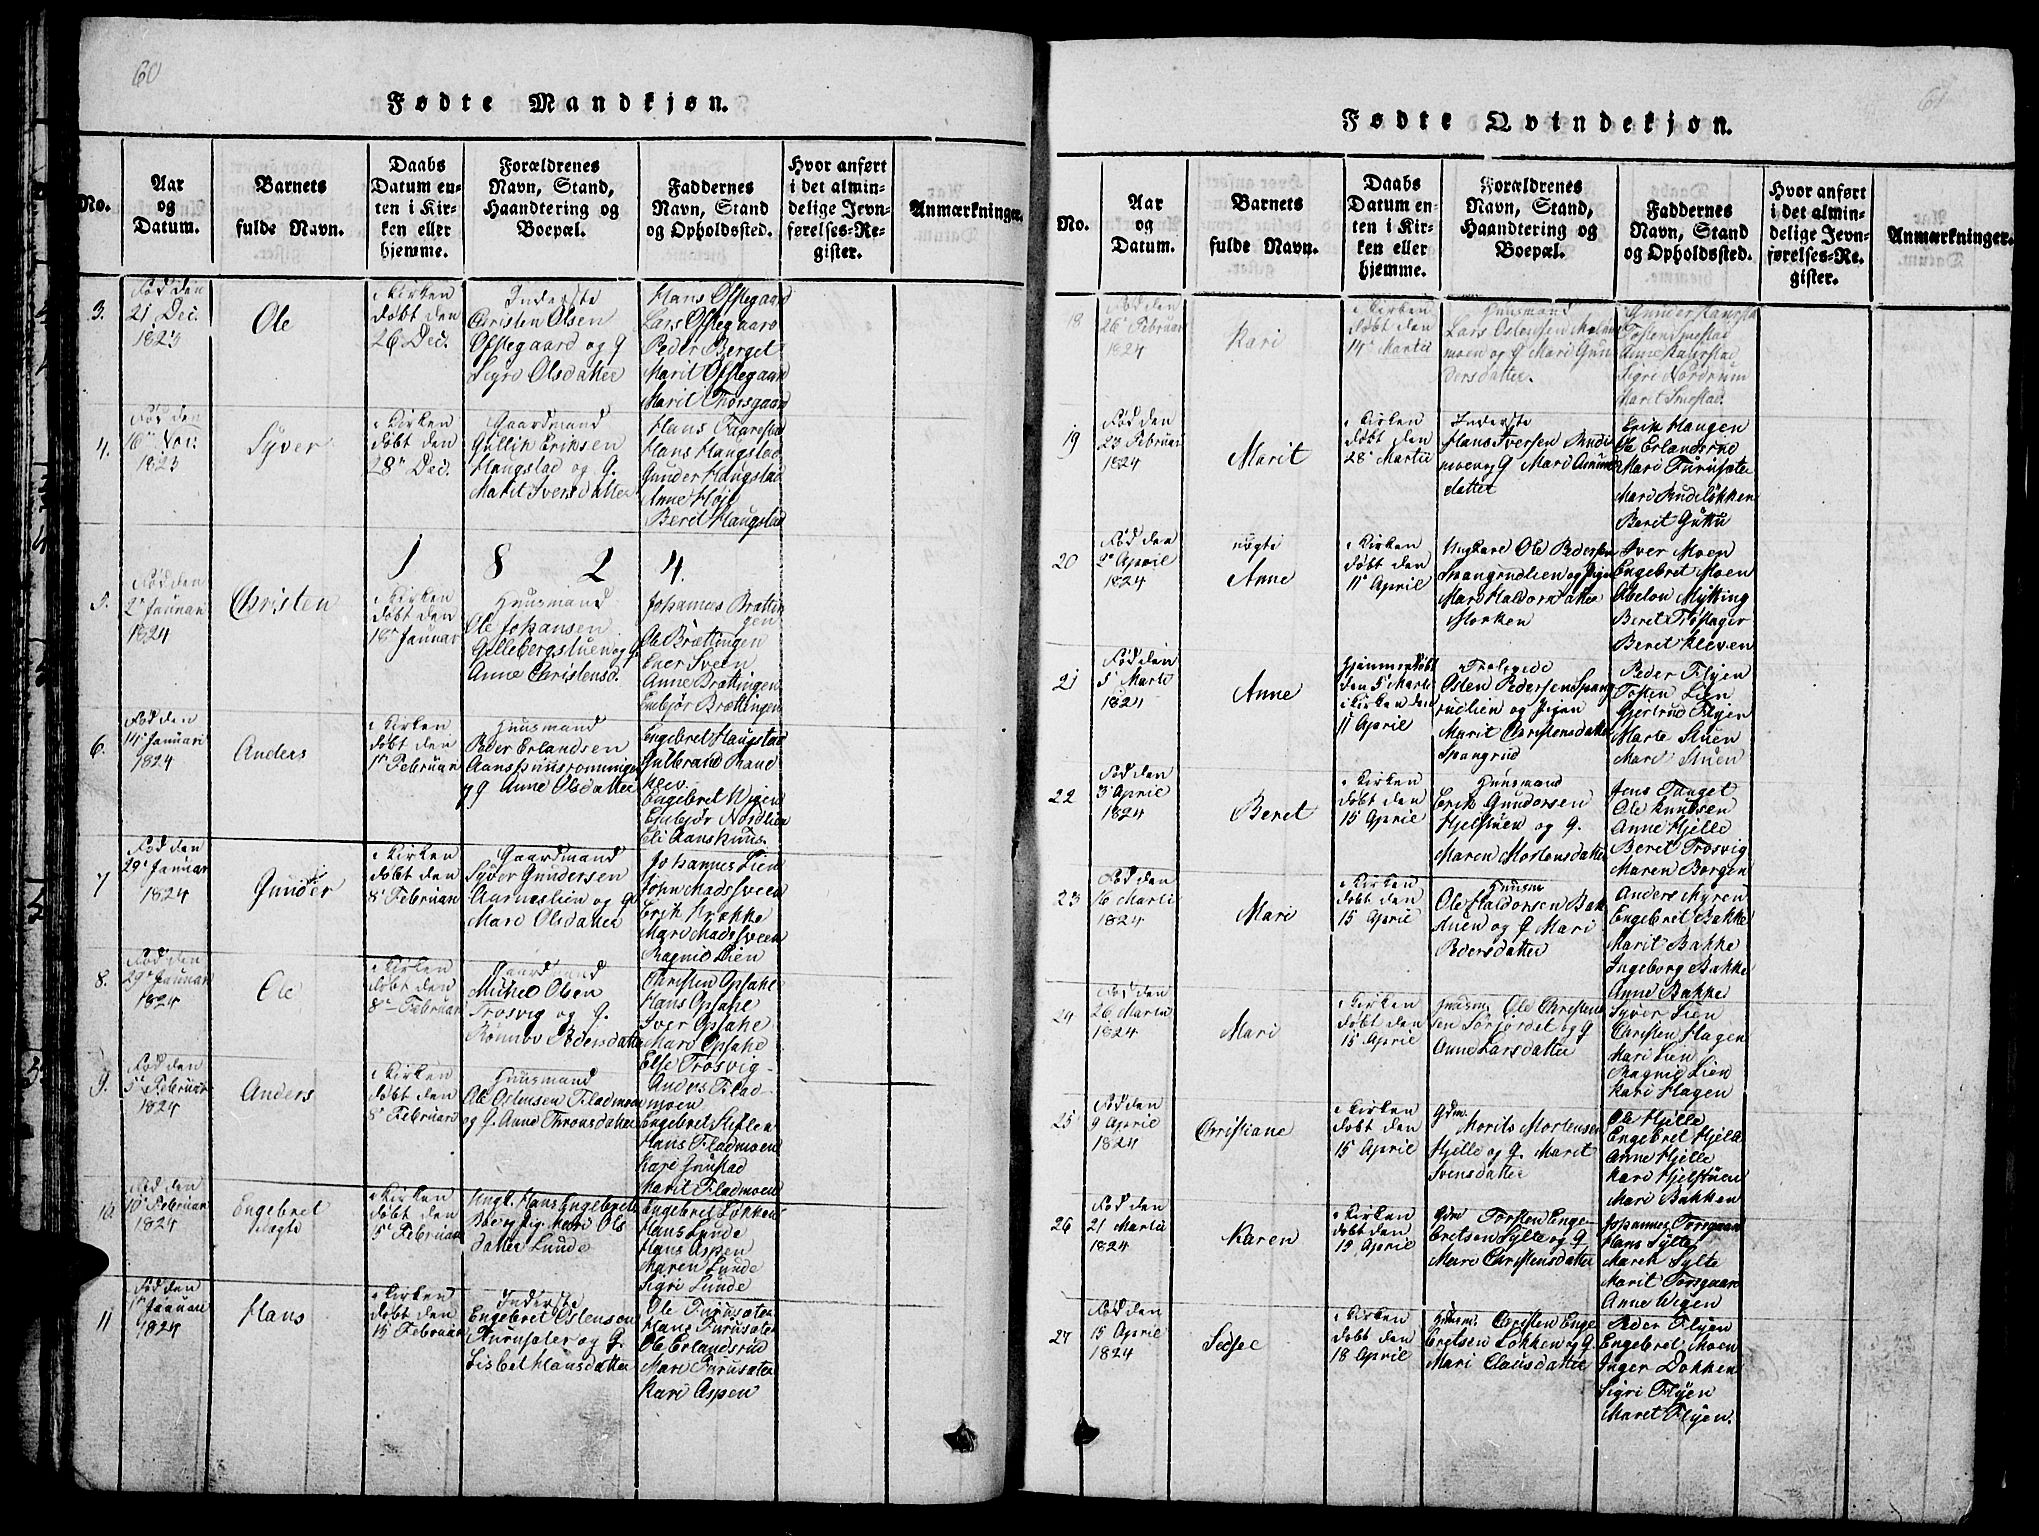 60
Fødte Mandkjøn.
No.
Aar
og
Datum.
Barnets
fulde Navn.
Daabs
Datum en-
ten i Kir-
ken eller
hjemme.
Forældrenes
Navn, Stand,
Haandtering og
Boepæl.
Faddernes
Navn, Stand
og Opholdssted.
Hvor anført
i det almin-
delige Jevn-
førelses-Re-
gister.
Anmærkninger.
3.
Fød den
21 Dec.
1823
Ole
i Kirken
døbt den
26 Dec.
Inderste
Christen Olsen
Ofstegaard og G
Sigri Olsdatter
Hans Ofstegaard
Lars Ofstegaard
Peder Berget
Marit Ofstegaard
Marit Thorsgaard
4.
Fød den
16 Nov:
1823
Syver
i Kirken
døbt den
28 Dec.
Gaardmand
Gullik Eriksen
Haugstad og G.
Marit Iversdatter
Hans Taarestad
Hans Haugstad
Gunder Haugstad
Anne Høje
Berit Haugstad
1 8 2 4.
5.
Fød den
2 Januari
1824
Christen
i Kirken
døbt den
18 Januar
Huusmand
Ole Johansen
Gillebergstuen og G
Anne Christensd.
Johannes Brættin
gen
Ole Brættingen
Ener Sveen
Anne Brættingen
Embjør Brættingen
6.
Fød den
14 Januari
1824
Anders
i Kirken
døbt den
1 Februar
Huusmand
Peder Erlandsen
og G Anne Olsdatter
Engebret Haugstad
Gulbrand Rane
klev.
Engebret Wigen
Embjør Nordlien
Eli Aanshuus.
7
Fød den
29 Januar
1824
Gunder
i Kirken
døbt den
8 Februar
Gaardmand
Syver Gundersen
Aarneslien og G
Mari Olsdatter
Johannes Lien
John Madssveen
Erik Krække
Mari Madssveen
Ragnid Lien
8.
Fød den
29 Januar
1824
Ole
i Kirken
døbt den
8 Februar
Gaardmand
Michel Olsen
Trosvig og G.
Rønnov Pedersdatter
Christen Opsahl
Hans Opsahl
Iver Opsahl
Mari Opsahl
Else Trosvig
9.
Fød den
5 Februar
1824
Anders
i Kirken
døbt den
8 Februari
Huusmand
Ole Ostensen Fladmoen
og G. Anne Thronsdatter
Anders Flad-
moen
Engebret Steflen
Hans Fladmoen
Kari Gunstad
Marit Fladmoen
10.
Fød den
10 Februar
1824
Engebret
uægte
i Kirken
døbt den
15 Februar
Ungk. Hans Engebrets
Berg, Pig. Mari Ols
datter Lunde
Engebret Løkken
Hans Lunde
Hans Aspen
Maren Lunde
Sigri Lunde
11
Fød den
1 Januari
1824
Hans
i Kirken
døbt den
15 Februar
Inderste
Engebret Ostensen
Furusater og G.
Lisbet Hansdatter
Ole Furusater
Hans Furusater
Ole Erlandsrud
Mari Furusater
Kari Aspen
61
Fødte Qvindekjøn.
No.
Aar
og
Datum.
Barnets
fulde Navn.
Daabs
Datum en-
ten i Kir-
ken eller
hjemme.
Forældrenes
Navn, Stand,
Haandtering og
Boepæl.
Faddernes
Navn, Stand
og Opholdssted.
Hvor anført
i det almin-
delige Jevn-
førelses-Re-
gister.
Anmærkninger.
18
Fød den
26 Februar
1824
Kari
i Kirken
døbt den
14 Martii
Huusmand
Lars Ostensen
moen og G Mari Gun
dersdatter.
Gunder
Tosten Smestad
Anne
Sigri Nordrum
Marit Smestad.
19
Fød den
23 Februar
1824
Marit
i Kirken
døbt den
28 Martii
Inderste
Hans Iversen Rudi
moen og G Mari Amund
datter
Erik Haugen
Ole Erlandsrud
Mari Furusater
Mari Rudiløkken
Berit Guttu
20
Fød den
2 April
1824
uægte
Anne
i Kirken
døbt den
11 April
Ungkarl Ole Pedersen
Spangrudlien og Pigen
Mari Haldorsdatter
Morken
Iver Moen
Engebret Moen
Abelon Mytting
Beret Trøstager
Beret Kleven
21
Fød den
5 Marti
1824
Anne
hjemmedøbt
den 5 Marti
i Kirken den
11 April
Frelegede
Osten Pedersen Spang
rudlien og Pigen
Marit Christensdatter
Spangrud
Peder Flyen
Tosten Lien
Gjertrud Flyen
Marte Stuen
Mari Stuen
22
Fød den
3 April
1824
Beret
i Kirken
døbt den
15 April
Huusmand
Erik Gundersen
Hjelstuen og G.
Maren Mortensdatter
Jens Tanget
Ole Knudsen
Anne Hjelle
Beret Trosvig
Maren Borgen
23
Fød den
16 Martii
1824
Mari
i Kirken
døbt den
15 April
Huusm
Ole Haldorsen Bak
stuen og G Mari
Pedersdatter
Anders Myren
Engebret Bakke
Marit Bakke
Ingeborg Bakke
Anne Bakke
24
Fød den
26 Martii
1824
Mari
i Kirken
døbt den
15 April
Huusm. Ole Christen
sen Sørjordet og G
Anne Larsdatter
Syver Lien
Christen Hagen
Mari Lien
Ragnid Lien
Kari Hagen
25
Fød den
9 April
1824
Christiane
i Kirken
døbt den
15 April
Gdm. Morits Mortensen
Hjelle og G. Marit
Svensdatter
Ole Hjelle
Engebret Hjelle
Anne Hjelle
Kari Hjelstuen
Mari Bakken
26
Fød den
21 Martii
1824
Karen
i Kirken
døbt den
15 April
Gdm Torsten Enge
bretsen Sylte og G
Mari Christensdatter
Johannes Torsgaard
Hans Sylte
Marith Sylte
Marit Torsgaard
Anne Wigen
27
Fød den
15 April
1824
Sidsel
i Kirken
døbt den
18 April
Huusm. Christen Enge
bretsen Løkken og G
Mari Clausdatter
Peder Flyen
Engebret Moen
Inger Dokken
Sigri Flyen
Maret Flyen.